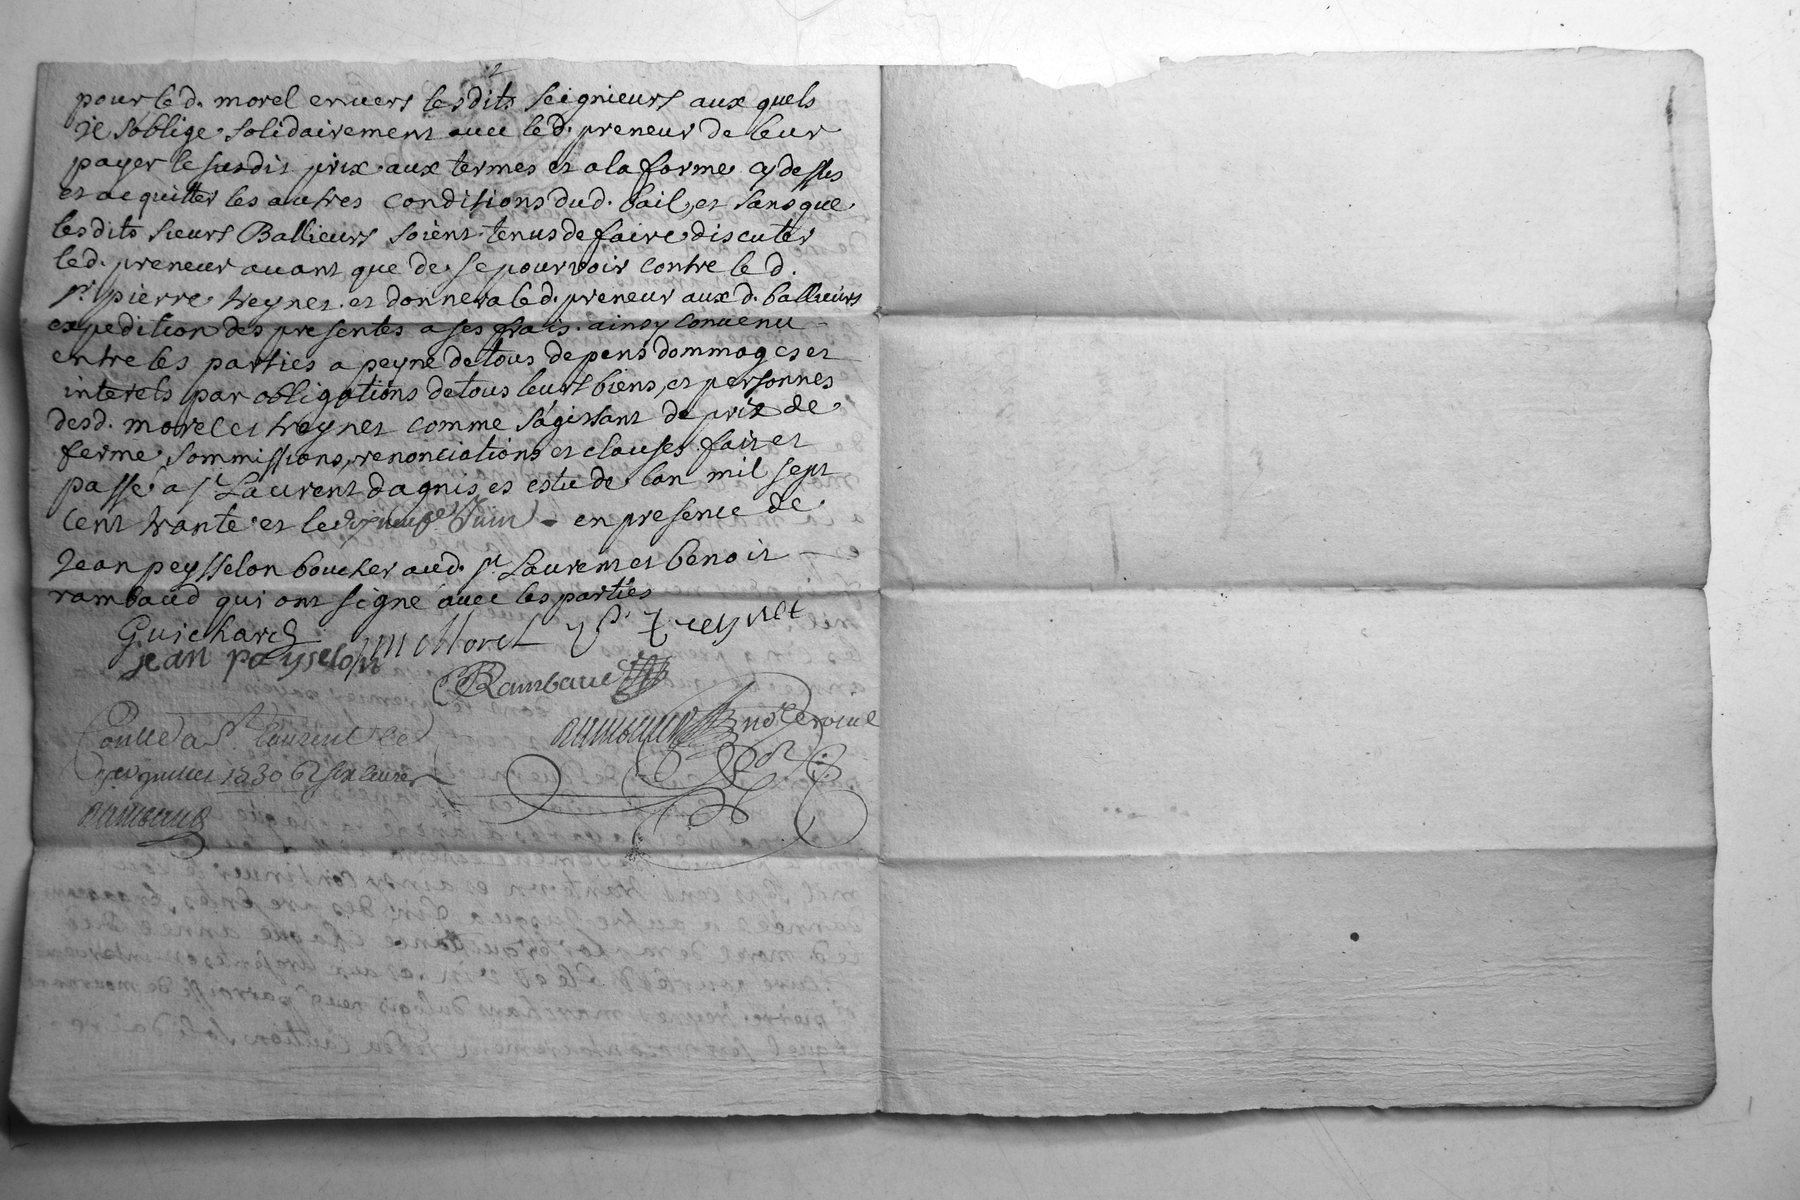 pour led. morel envers lesdits seignieurs aux quels
il s'oblige solidairement avec led. preneur de leur
payer le susdit prix aux termes et a la forme cy dessus
et acquitter les autres conditions dud. bail, et sans que
lesdits sieurs Ballieurs soient tenus de faire discuter
led. preneur avant que de se pourvoir contre led.
sr. pierre treynet. et donnera led. preneur auxd. ballieurs
expedition des presentes a ses frais. ainsy convenu
entre les parties a peyne de tous depens dommages et
interets par obligations de tous leurs biens, et personnes
desd. morel et treynet comme s'agissant de prix de
ferme, sommissions, renonciations et clauses. fait et
passé a st Laurent dagnis es estude lan mil sept
cent trante et le Juin en presence de
Jean peysselon boucher aud. st. Laurent et benoit
rambaud qui ont signé avec les parties
Guichard
Morel p. treynet
jean paysselon
Rambaud
rambaud no.re royal
Conllé a St. laurent le
juillet 1730 Rx six livres
rambaud